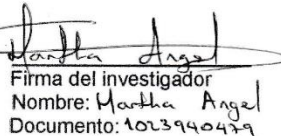 Martha Angel
Firma del investigador
Nombre: Martha Angel
Documento: 1023940479